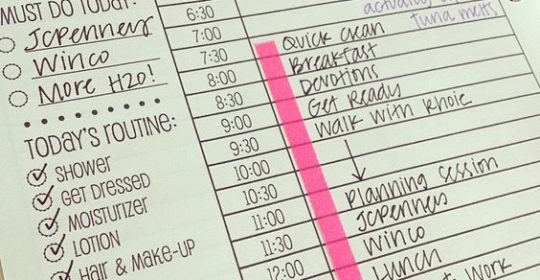 MUST DO TODAY:
JCPenneys
Winco
More H2O!
TODAY'S ROUTINE:
SHOWER
GET DRESSED
MOISTURIZER
LOTION
HAIR & MAKE-UP
6:30
7:00
7:30
8:00
8:30
9:00
9:30
10:00
10:30
11:00
11:30
12:00
tuna melts
Quick clean
Breakfast
Devotions
Get Ready
Walk with
Planning session
JCPenneys
Winco
Lunch
Work